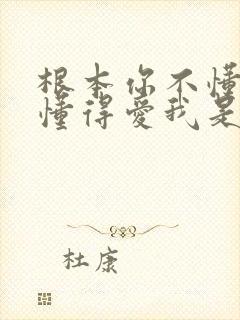 根本你不懂
懂得愛我是
杜康